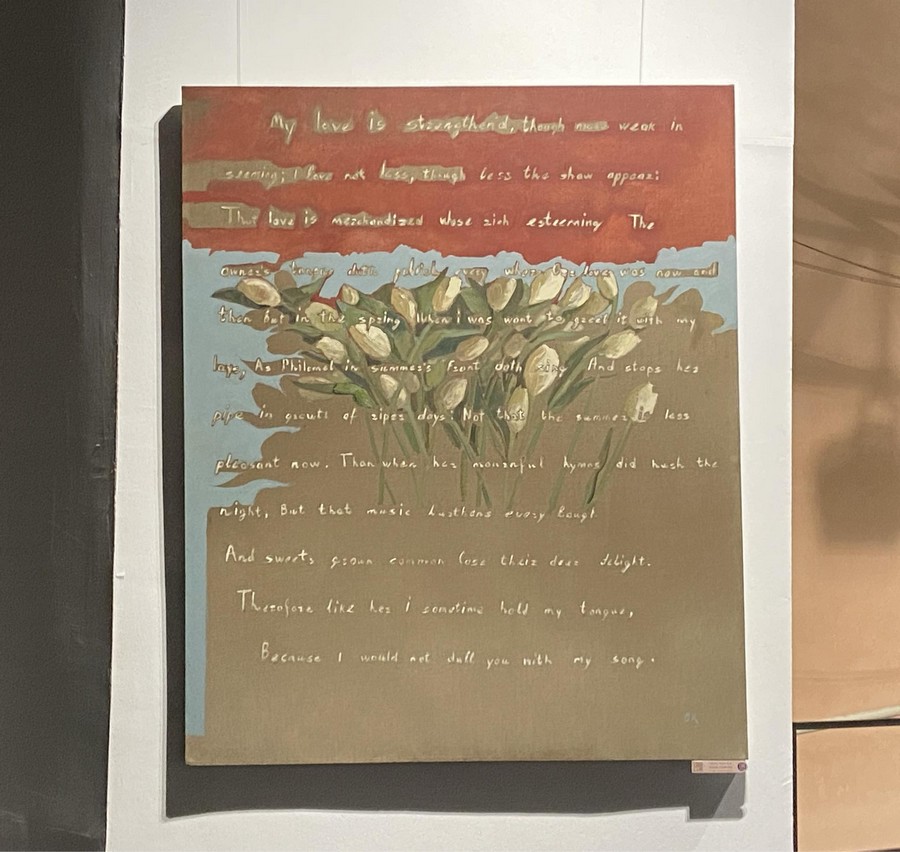 My love is strengthen'd, though more weak in
seeming; I love not less, though less the show appear:
That love is merchandized whose rich esteeming The
owner's tongue doth publish every where. Our love was new and
then but in the spring When i was wont to greet it with my
lays, As Philomel in summer's front doth sing And stops her
pipe in growth of riper days: Not that the summer is less
pleasant now. Than when her mournful hymns did hush the
night, But that music burthens every bough
And sweets grown common lose their dear delight.
Therefore like her i sometime hold my tongue,
Because I would not dull you with my song.